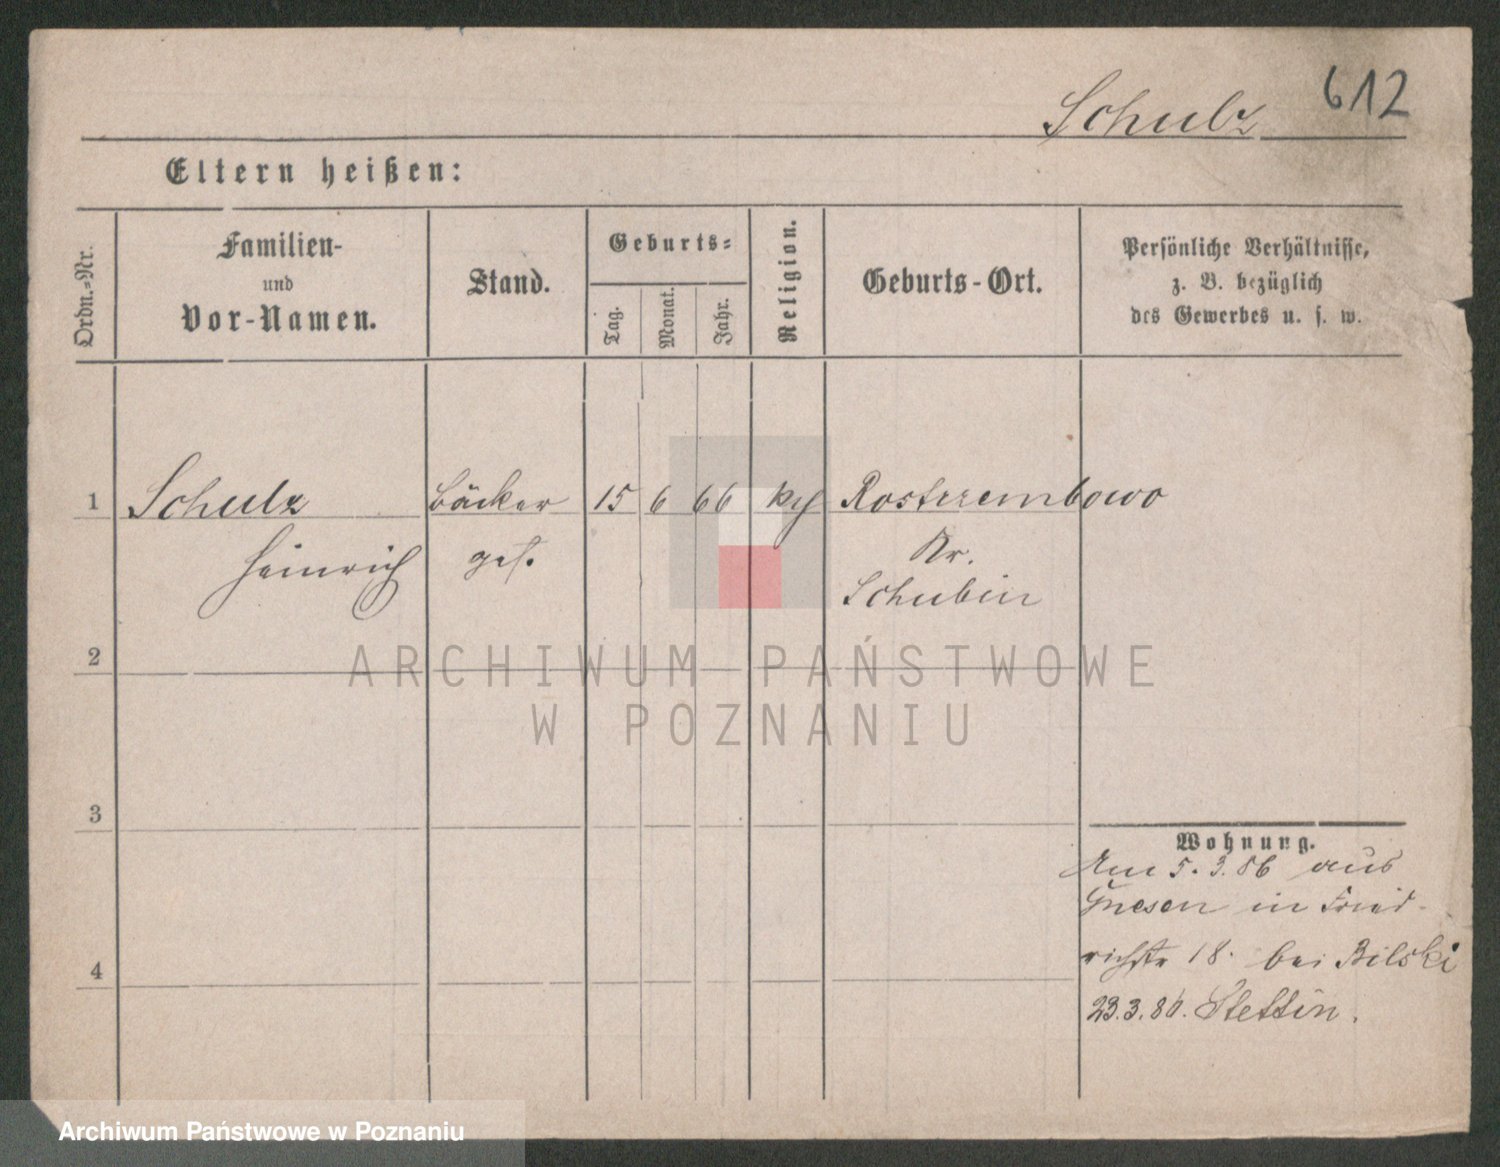 Schulz 612
Eltern heißen:
Ordn.-Nr.
Familien-
und
Vor-Namen.
Stand.
Geburts-
Tag.
Monat.
Jahr.
Religion.
Geburts-Ort.
Persönliche Verhältnisse,
z. B. bezüglich
des Gewerbes u. s. w.
1 Schulz Bäcker 15 6 66 Rostrzembowo
Heinrich ges. Kr.
Schubin
2
3
4
Wohnung.
Am 5.3.86 aus
Gnesen in Fried-
richstr 18. bei Bilski
23.3.86. Stettin.
ARCHIWUM PAŃSTWOWE
W POZNANIU
Archiwum Państwowe w Poznaniu